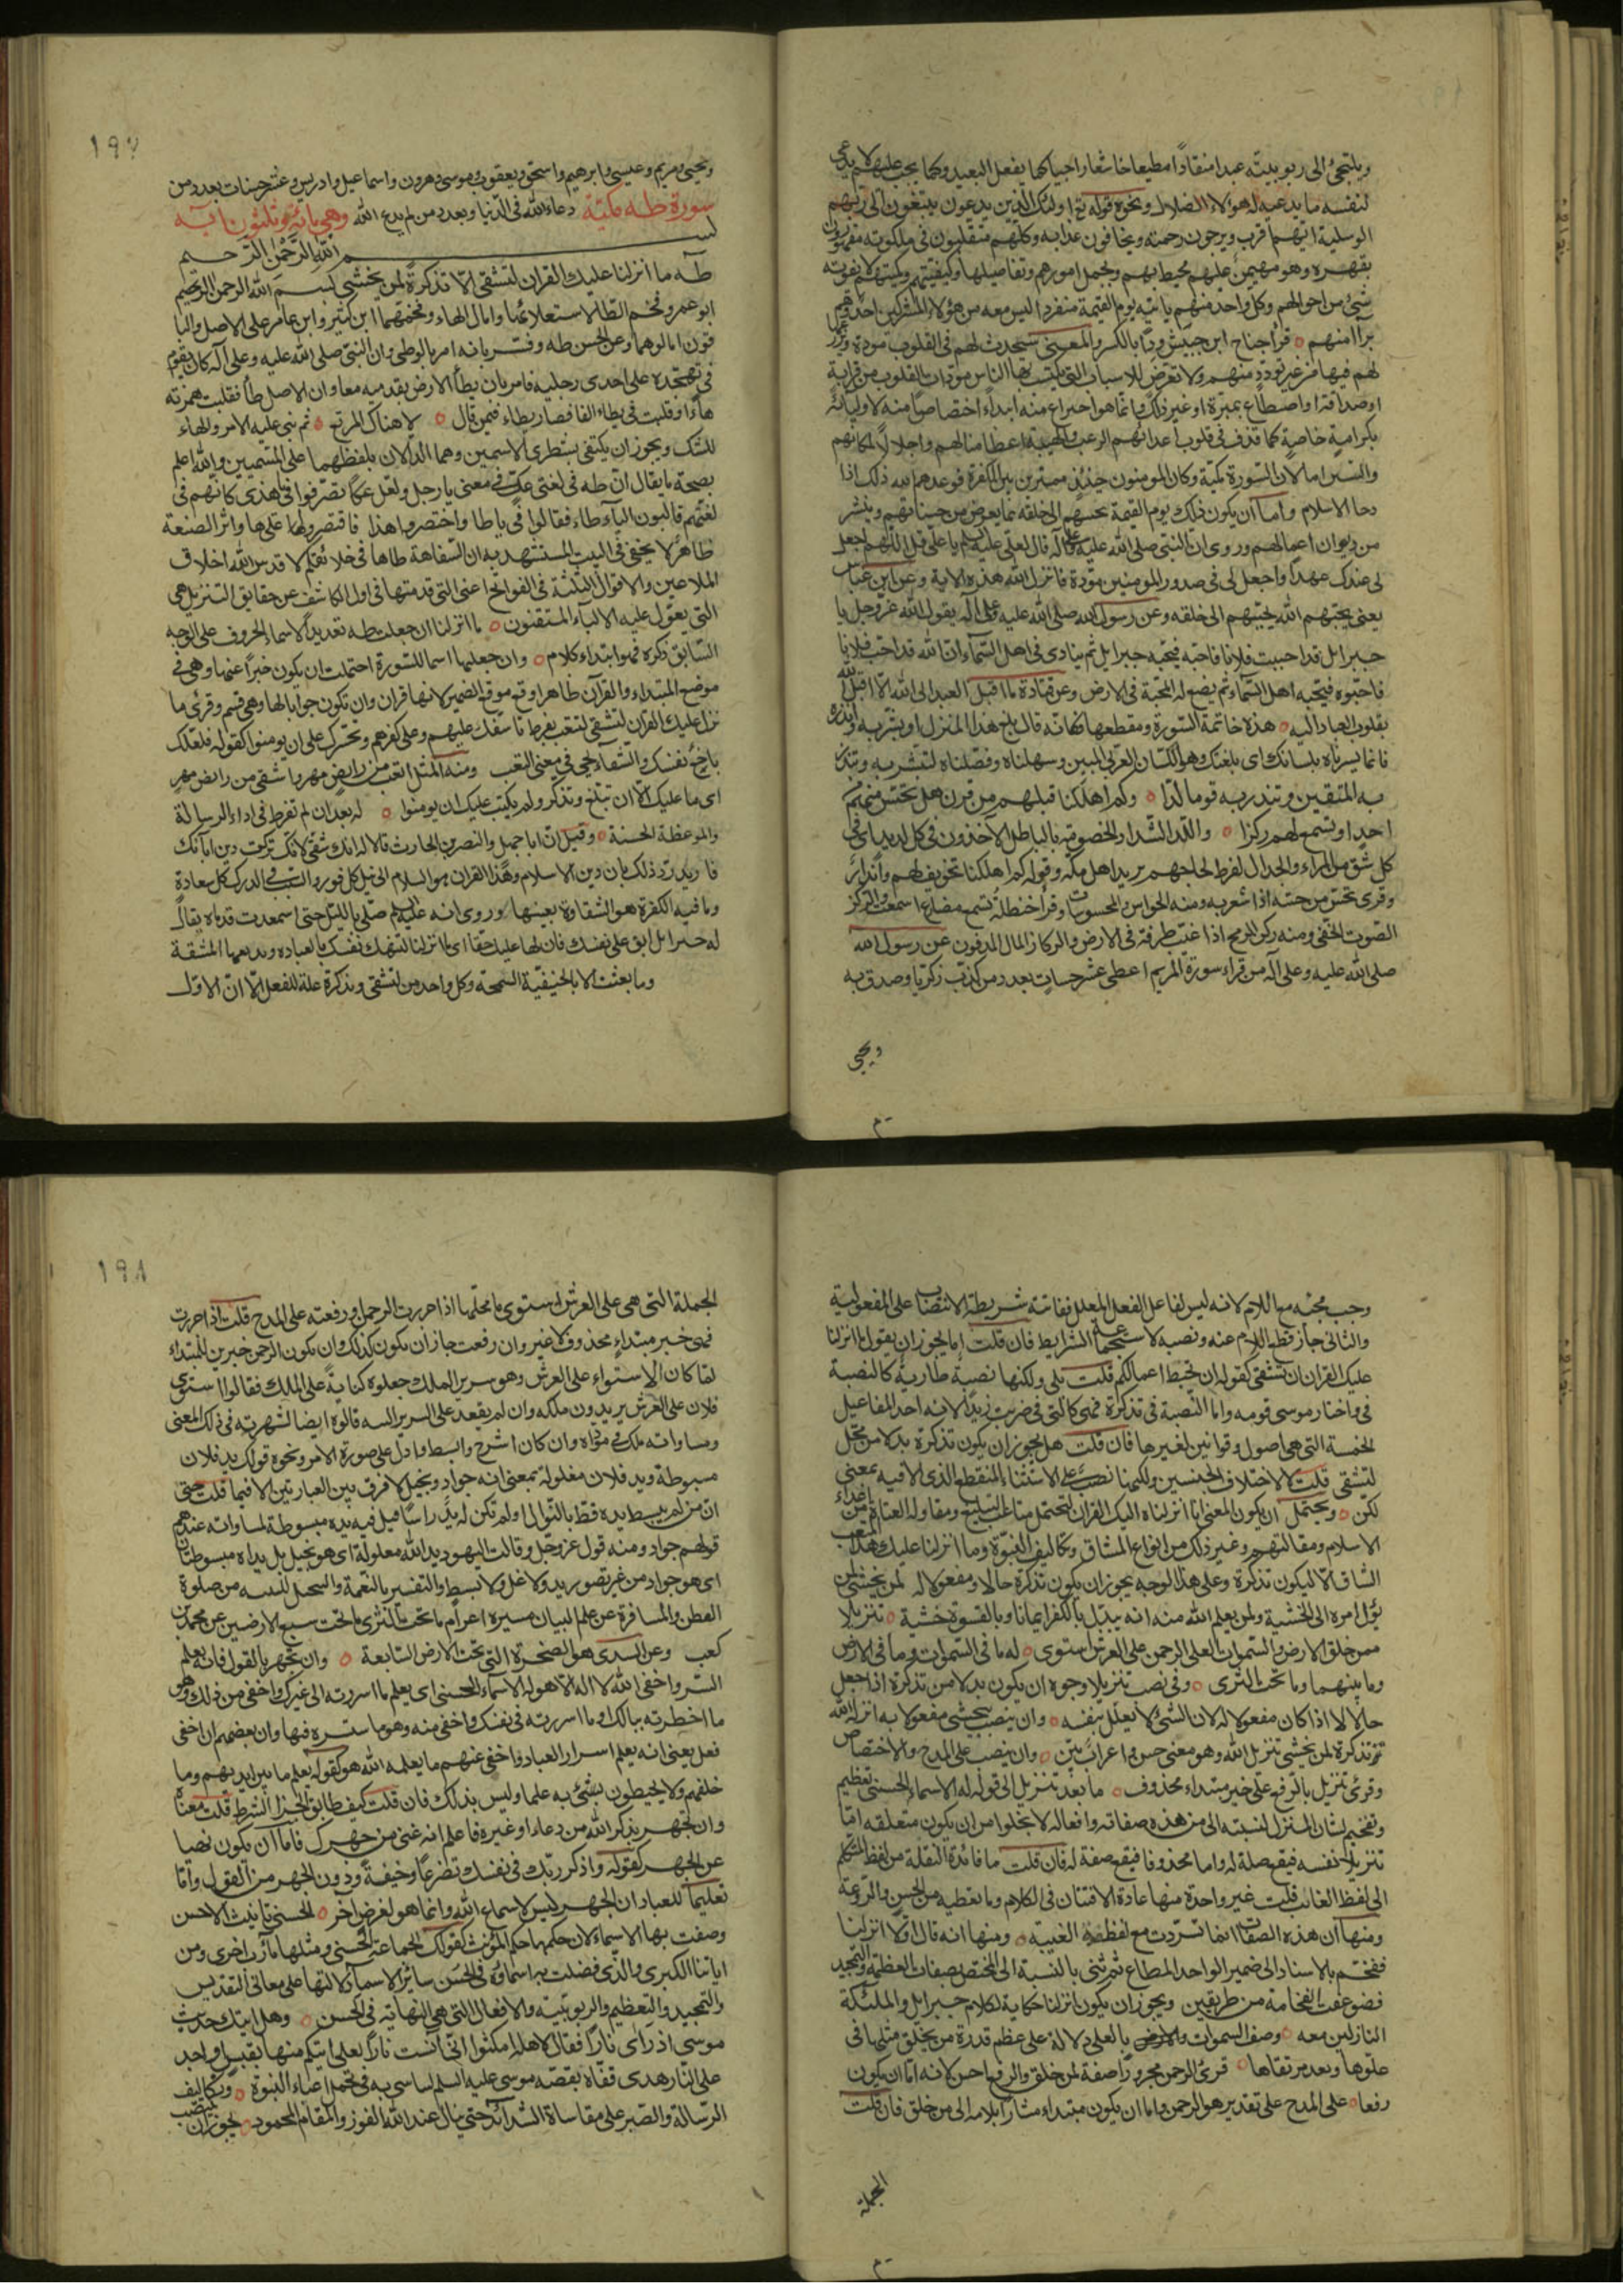 ويلتجئ الى ربوبيته عبدا منقادًا مطيعا خاشعا راجيا كما يفعل العبيد وكما يجب عليهم لا يدعى
لنفسه ما يدعيه له هؤلاء الضلال ونحوه قوله تع اولئك الذين يدعون يبتغون الى ربهم
الوسيلة ايهم اقرب ويرجون رحمته ويخافون عذابه وكلهم متقلبون فى ملكوته مقهورون
بقهره وهو مهيمن عليهم محيط بهم وبجمل امورهم وتفاصيلها وكيفيتهم وكميتهم لا يفوته
شئ من احوالهم وكل واحد منهم ياتيه يوم القيمة منفردا ليس معه من هؤلاء المشركين احد وهم
برآ منهم ه قرأ جناح ابن حبيش ودًّا بالكسر والمعنى سيحدث لهم فى القلوب مودة ويزرعها
لهم فيها من غير تودد منهم ولا تعرض للاسباب التى يكتسب بها الناس مودات القلوب من قرابة
او صداقة او اصطناع بمبرّة او غير ذلك وانما هو اختراع منه ابتداء اختصاصا منه لاوليائه
بكرامة خاصة كما قذف فى قلوب اعدائهم الرعب والهيبة اعظاما لهم واجلالا لمكانهم
والسين اما لان السورة مكية وكان المومنون حينئذ ممقوتين بين الكفرة فوعدهم الله ذلك اذا
دحا الاسلام واما ان يكون ذلك يوم القيمة يحببهم الى خلقه بما يعرض من حسناتهم وينشر
من ديوان اعمالهم وروى ان النبى صلى الله عليه وعلى آله قال لعلى عليه السلم يا على قل اللهم اجعل
لى عندك عهدًا واجعل لى فى صدور المومنين مودة فانزل الله هذه الاية وعن ابن عباس
يعنى يحبهم الله يحببهم الى خلقه وعن رسول الله صلى الله عليه وعلى آله يقول الله عز وجل يا
جبرايل قد احببت فلانا فاحبه فيحبه جبرايل ثم ينادى فى اهل السمآء ان الله قد احب فلانا
فاحبوه فيحبه اهل السماء ثم يضع له المحبة فى الارض وعن قتادة ما اقبل العبد الى الله الا اقبل الله
بقلوب العباد اليه ه هذه خاتمة السورة ومقطعها فكانه قال بلغ هذا المنزل او بشر به وانذر
فانما يسرناه بلسانك اى بلغتك وهو اللسان العربى المبين وسهلناه وفصلناه لتبشر به وتنذر
به المتقين وتنذر به قوما لدا ه وكم اهلكنا قبلهم من قرن هل تحس منهم من
احد او تسمع لهم ركزا ه واللد الشداد الخصومة بالباطل الآخذون فى كل لديد اى فى
كل شق من المراء والجدال لفرط لجاجهم يريد اهل مكة وقوله كم اهلكنا تخويف لهم وانذار
وقرئ تحس من حسه اذا شعر به ومنه الحواس والمحسوسات وقرأ حنظلة تسمع مضارع اسمعت والركز
الصوت الخفى ومنه ركز الرمح اذا غيب طرفه فى الارض والركاز المال المدفون عن رسول الله
صلى الله عليه وعلى آله من قراء سورة المريم اعطى عشر حسنات بعدد من كذب زكريا وصدق به
ويحيى
١٩٧
ويحيى ومريم وعيسى وابرهيم واسحق ويعقوب وموسى وهرون واسماعيل وادريس وعشر حسنات بعدد من
سورة طه مكية دعاء الله فى الدنيا وبعدد من لم يدع الله وهى مائة وثلثون اية
بســم الله الرحمن الرحيم
طه ما انزلنا عليك القران لتشقى الا تذكرة لمن يخشى بسم الله الرحمن الرحيم
ابو عمرو فخم الطا لاستعلائها وامال الهاء وفخمهما ابن كثير وابن عامر على الاصل والبا
قون امالوهما وعن الحسن طه وفسر بانه امر بالوطى وان النبى صلى الله عليه وعلى آله كان يقوم
فى تهجده على احدى رجليه فامر بان يطأ الارض بقدميه معا وان الاصل طأ فقلبت همزته
هاءً او قلبت فى يطاء الفا فصار يطاء فيمن قال ه لا هناك المرتع ه ثم بنى عليه الامر والهاء
للسكت ويجوز ان يكتفى بشطرى الاسمين وهما الدالان بلفظهما على المسميين والله اعلم
بصحة ما يقال ان طه فى لغة عكّ فى معنى يا رجل ولعل عكًا تصرفوا فى يا هذى كانهم فى
لغتهم قالبون اليآء طاء فقالوا فى يا طا واختصروا هذا فاقتصروا على ها واثر الصنعة
ظاهر لا يخفى فى البيت المستشهد به ان السفاهة طاها فى خلائقكم لا قدس الله اخلاق
الملاعين والاقوال الثلثة فى الفواتح اعنى التى قدمتها فى اول الكاشف عن حقايق التنزيل هى
التى يعوّل عليه الالبآء المتقنون ه ما انزلنا ان جعلت طه تعديدًا لاسماء الحروف على الوجه
السابق ذكره فهو ابتداء كلام ه وان جعلتها اسما للسورة احتملت ان يكون خبرًا عنها وهى فى
موضع المبتداء والقرآن ظاهر اوقع موقع الضمير لانها قران وان تكون جوابا لها وهى قسم وقرئ ما
نزل عليك القران لتشقى لتتعب بفرط تاسفك عليهم وعلى كفرهم وتحسرك على ان يومنوا كقوله فلعلك
باخع نفسك والشقآء يجى فى معنى التعب ومنه المثل اتعب من رايض مهر واشقى من رايض مهر
اى ما عليك الا ان تبلغ وتذكر ولم يكتب عليك ان يومنوا ه لا بعد ان لم تفرط فى اداء الرسالة
والموعظة الحسنة ه وقيل ان ابا جهل والنضر بن الحارث قالا له انك شقى لانك تركت دين ابائك
فاريد رد ذلك بان دين الاسلام وهذا القران هو السلم الى نيل كل فوز والسبب فى الدرك كل سعادة
وما فيه الكفرة هو الشقاوة بعينها وروى انه عليه السلم صلى بالليل حتى اسمعدت قدماه فقال
له جبرايل ابق على نفسك فان لها عليك حقا اى ما انزلنا لتنهك نفسك بالعبادة وتذيقها المشقة
وما بعثت الا بالحنيفية السمحة وكل واحد من لتشقى وتذكرة علة للفعل الا ان الاول
وجب مجيئه مع اللام لانه ليس لفاعل الفعل المعلل ففاتته شريطة الانتصاب على المفعولية
والثانى جاز قطع اللام عنه ونصبه لاستجماعه الشرايط فان قلت اما يجوز ان يقول ما انزلنا
عليك القران ان تشقى كقوله ان تحبط اعمالكم قلت بلى ولكنها نصبة طارية كالنصبة
فى واختار موسى قومه واما النصبة فى تذكرة فهى كالتى فى ضربت زيدًا لانه احد المفاعيل
الخمسة التى هى اصول وقوانين لغيرها فان قلت هل يجوز ان يكون تذكرة بدلا من محل
لتشقى قلت لا لاختلاف الجنسين ولكنها نصب على الاستثناء المنقطع الذى الا فيه بمعنى
لكن ه ويحتمل ان يكون المعنى انا انزلنا اليك القران لتحتمل متاعب التبليغ ومقاولة العتاة من اعداء
الاسلام ومقاتلتهم وغير ذلك من انواع المشاق وتكاليف النبوة وما انزلنا عليك هذا المتعب
الشاق الا ليكون تذكرة وعلى هذا الوجه يجوز ان يكون تذكرة حالا ومفعولا له لمن يخشى لمن
يؤل امره الى الخشية ولمن يعلم الله منه انه يبدل بالكفر ايمانا وبالقسوة خشية ه تنزيلا
ممن خلق الارض والسموات العلى الرحمن على العرش استوى ه له ما فى السموات وما فى الارض
وما بينهما وما تحت الثرى ه وفى نصب تنزيلا وجوه ان يكون بدلا من تذكرة اذا جعل
حالا لا اذا كان مفعولا له لان الشئ لا يعلل بنفسه ه وان ينصب بيخشى مفعولا به انزل الله
تذكرة لمن يخشى تنزيل الله وهو معنى حسن واعراب بين ه وان ينصب على المدح والاختصاص
وقرئ تنزيل بالرفع على خبر مبتداء محذوف ه ما بعد تنزيل الى قوله له الاسماء الحسنى تعظيم
وتفخيم لشان المنزل لنسبته الى من هذه صفاته وافعاله لا يخلوا من ان يكون متعلقه اما
تنزيلا نفسه فيقع صلة له واما محذوفا فيقع صفة له فان قلت ما فائدة النقلة من لفظ المتكلم
الى لفظ الغائب قلت غير واحدة منها عادة الافتنان فى الكلام وما يعطيه من الحسن والروعة
ومنها ان هذه الصفات انما تسردت مع لفظ الغيبة ه ومنها انه قال اولا انزلنا
ففخم بالاسناد الى ضمير الواحد المطاع ثم ثنى بالنسبة الى المختص بصفات العظمة والتمجيد
فضوعفت الفخامة من طريقين ويجوز ان يكون انزلنا حكاية لكلام جبرايل والملئكة
النازلين معه ه وصف السموات بالعلى دلالة على عظم قدرة من يخلق مثلها فى
علوها وبعد مرتقاها ه قرئ الرحمن مجرورًا صفة لمن خلق والرفع احسن لانه اما ان يكون
رفعا ه على المدح على تقدير هو الرحمن واما ان يكون مبتداء مشارا بلامه الى من خلق فان قلت
الجملة
١٩٨
الجملة التى هى على العرش استوى ما محلها اذا جررت الرحمن او رفعته على المدح قلت اذا جررت
فهى خبر مبتداء محذوف لا غير وان رفعت جاز ان يكون كذلك وان يكون الرحمن خبرين للمبتداء
لما كان الاستواء على العرش وهو سرير الملك جعلوه كناية على الملك فقالوا استوى
فلان على العرش يريدون ملكه وان لم يقعد على السرير البتة قالوه ايضا لشهرته فى ذلك المعنى
ومساواته ملك فى مؤداه وان كان اشرح وابسط وادل على صورة الامر ونحوه قولك يد فلان
مبسوطة ويد فلان مغلولة بمعنى انه جواد وبخيل لا فرق بين العبارتين الا فيما قلت حتى
ان من لم يبسط يده قط بالنوال او لم تكن له يد راسا قيل فيه يده مبسوطة لمساواته عندهم
قولهم جواد ومنه قول عز وجل وقالت اليهود يد الله مغلولة اى هو بخيل بل يداه مبسوطتان
اى هو جواد من غير تصور يد ولا غل ولا بسط والتفسير بالنعمة والتمحل للتسمية من ضلوة
العطن والمسافرة عن علم البيان مسيرة اعوام ما تحت الثرى ما تحت سبع الارضين عن محمد بن
كعب وعن السدى هو الصخرة التى تحت الارض السابعة ه وان تجهر بالقول فانه يعلم
السر واخفى الله لا اله الا هو له الاسماء الحسنى اى يعلم ما اسررته الى غيرك واخفى من ذلك وهو
ما اخطرته ببالك او ما اسررته فى نفسك واخفى منه وهو ما ستسره فيها وان بعضهم ان اخفى
فعل يعنى انه يعلم اسرار العباد واخفى عنهم ما يعلمه الله هو كقوله يعلم ما بين ايديهم وما
خلفهم ولا يحيطون بشئ به علما وليس بذلك فان قلت كيف طابق الجزا الشرط قلت معناه
وان تجهر بذكر الله من دعاء او غيره فاعلم انه غنى من جهرك فاما ان يكون نهيا
عن الجهر كقوله واذكر ربك فى نفسك تضرعا وخيفة ودون الجهر من القول واما
تعليما للعباد ان الجهر ليس لاسماع الله وانما هو لغرض اخر ه الحسنى تانيث الاحسن
وصفت بها الاسماء لان حكمها حكم المؤنث كقولك الجماعة الحسنى ومثلها مآرب اخرى ومن
اياتنا الكبرى والذى فضلت به اسماؤه فى الحسن سائر الاسماء دلالتها على معانى التقديس
والتمجيد والتعظيم والربوبية والافعال التى هى النهاية فى الحسن ه وهل اتيك حديث
موسى اذ رأى نارا فقال لاهله امكثوا انى آنست نارا لعلى اتيكم منها بقبس او اجد
على النار هدى قفاه بقصة موسى عليه السلم ليتاسى به فى تحمل اعباء النبوة ه وتكاليف
الرسالة والصبر على مقاساة الشدائد حتى ينال عند الله الفوز والمقام المحمود ه يجوز ان ينتصب